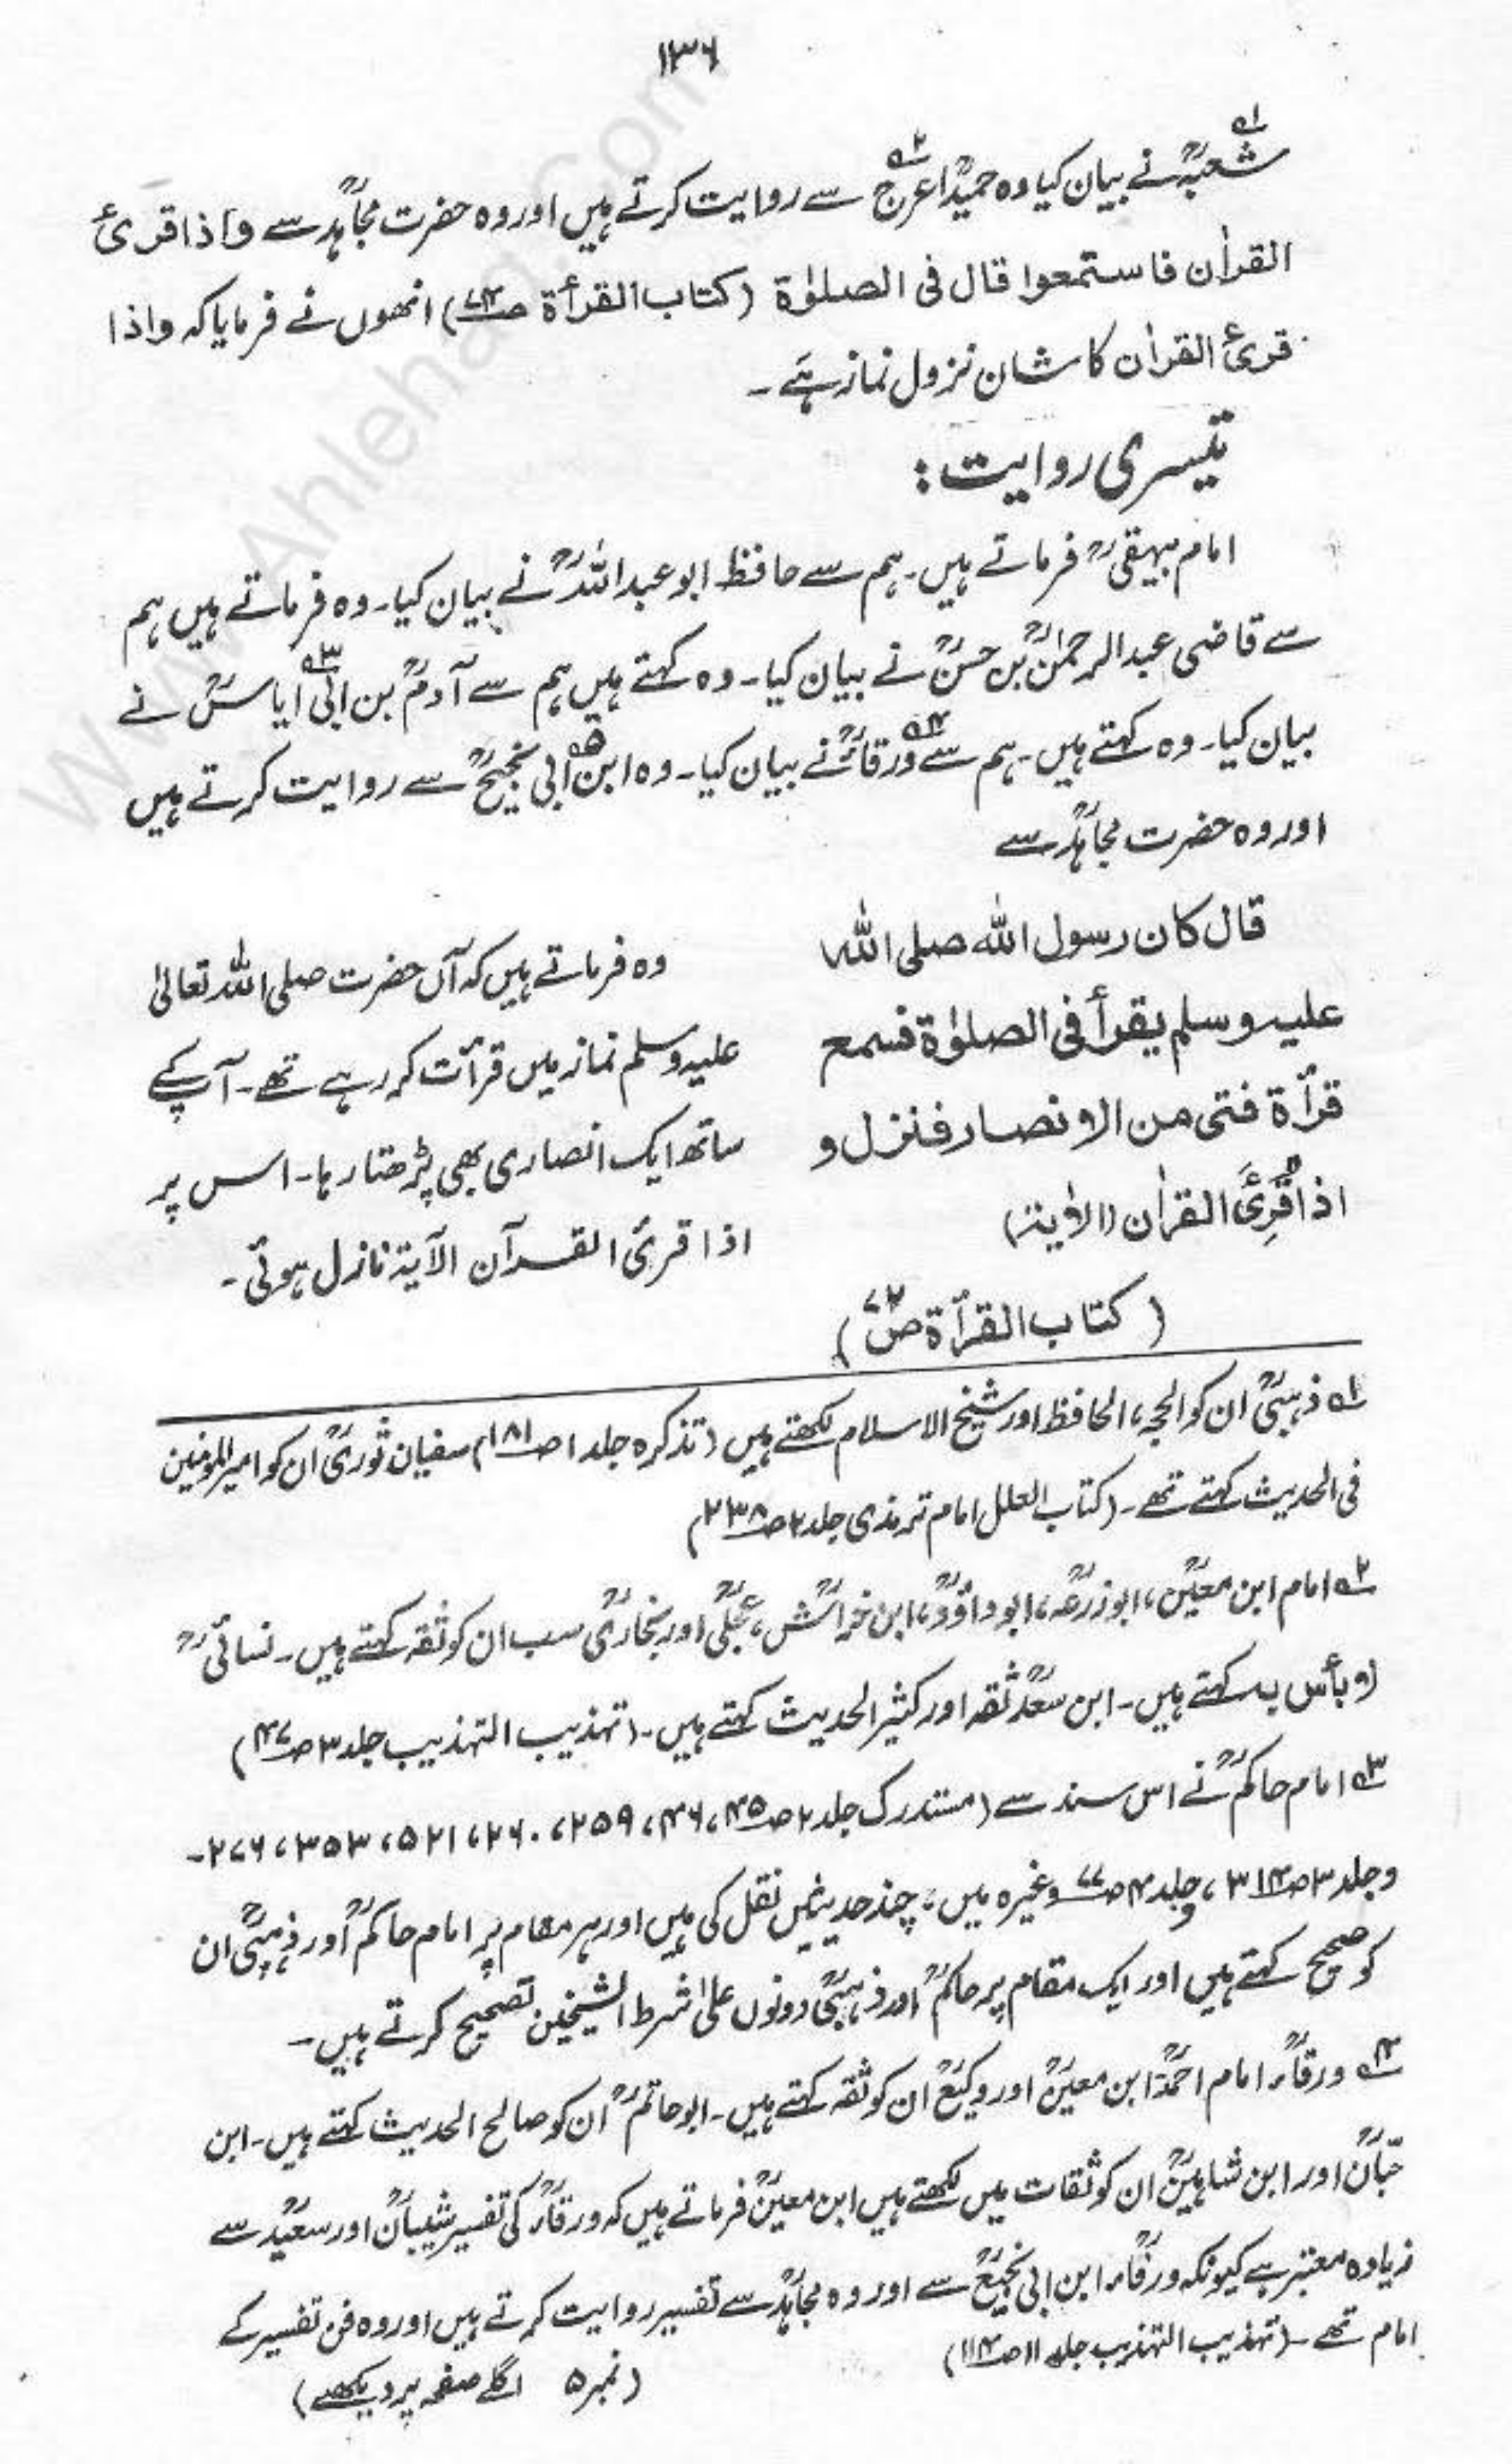 ۱۳۶
شعبہؒ نے بیان کیا وہ حمیدؒ اعرج سے روایت کرتے ہیں اور وہ حضرت مجاہدؒ سے واذا قرئ
القراٰن فاستمعوا قال فی الصلوٰۃ (کتاب القرأۃ ص۷۳) انھوں نے فرمایا کہ واذا
قرئ القراٰن کا شان نزول نماز ہے۔
تیسری روایت:
امام بیہقیؒ فرماتے ہیں۔ ہم سے حافظ ابو عبداللہؒ نے بیان کیا۔ وہ فرماتے ہیں ہم
سے قاضی عبدالرحمٰنؒ بن حسنؒ نے بیان کیا۔ وہ کہتے ہیں ہم سے آدمؒ بن ابی۳ ایاسؒ نے
بیان کیا۔ وہ کہتے ہیں۔ ہم سے ورقاءؒ۴ نے بیان کیا۔ وہ ابن۵ ابی نجیحؒ سے روایت کرتے ہیں
اور وہ حضرت مجاہدؒ سے
قال کان رسول اللہ صلی اللہ
علیہ وسلم یقرأ فی الصلوٰۃ فسمع
قرأۃ فتی من الانصار فنزل و
اذا قُرِئَ القراٰن (الاٰیۃ)
(کتاب القرأۃ ص۷۲)
وہ فرماتے ہیں کہ آں حضرت صلی اللہ تعالیٰ
علیہ وسلم نماز میں قرأت کر رہے تھے۔ آپ کے
ساتھ ایک انصاری بھی پڑھتا رہا۔ اس پر
اذا قرئ القرآن الآیۃ نازل ہوئی۔
۱ ذہبیؒ ان کو الحجہ، الحافظ اور شیخ الاسلام لکھتے ہیں (تذکرہ جلد ۱ ص۱۸۱) سفیان ثوریؒ ان کو امیر المومنین
فی الحدیث کہتے تھے۔ (کتاب العلل امام ترمذی جلد ۲ ص۲۳۸)
۲ امام ابن معینؒ، ابوزرعہؒ، ابوداؤدؒ، ابن خراشؒ، عجلیؒ اور بخاریؒ سب ان کو ثقہ کہتے ہیں۔ نسائیؒ
لا بأس بہ کہتے ہیں۔ ابن سعدؒ ثقہ اور کثیر الحدیث کہتے ہیں۔ (تہذیب التہذیب جلد ۳ ص۴۷)
۳ امام حاکمؒ نے اس سند سے (مستدرک جلد ۲ ص۴۵، ۴۶، ۲۵۹، ۲۶۰، ۵۲۱، ۳۵۳، ۲۷۶۔
وجلد ۳ ص۳۱۴، وجلد ۴ ص۷۷ وغیرہ میں، چند حدیثیں نقل کی ہیں اور ہر مقام پر امام حاکمؒ اور ذہبیؒ ان
کو صحیح کہتے ہیں اور ایک مقام پر حاکمؒ اور ذہبیؒ دونوں علیٰ شرط الشیخین تصحیح کرتے ہیں۔
۴ ورقاءؒ امام احمدؒ ابن معینؒ اور وکیعؒ ان کو ثقہ کہتے ہیں۔ ابوحاتمؒ ان کو صالح الحدیث کہتے ہیں۔ ابن
حبّانؒ اور ابن شاہینؒ ان کو ثقات میں لکھتے ہیں ابن معینؒ فرماتے ہیں کہ ورقاءؒ کی تفسیر شیبانؒ اور سعیدؒ سے
زیادہ معتبر ہے کیونکہ ورقاءؒ ابن ابی نجیحؒ سے اور وہ مجاہدؒ سے تفسیر روایت کرتے ہیں اور وہ فن تفسیر کے
امام تھے۔ (تہذیب التہذیب جلد ۱۱ ص۱۱۴)
(نمبر ۵ اگلے صفحہ پر دیکھیے)
www.Ahlehaq.Com